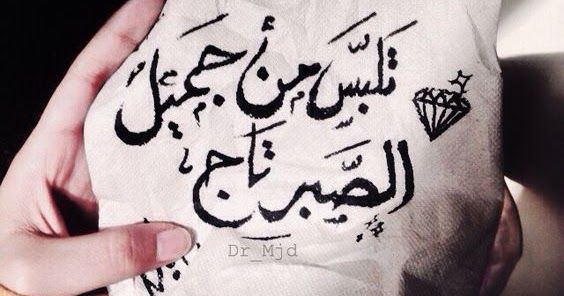 تَلبَّس مِنْ جَميْل
الصَّبر تَاج
Dr_Mjd